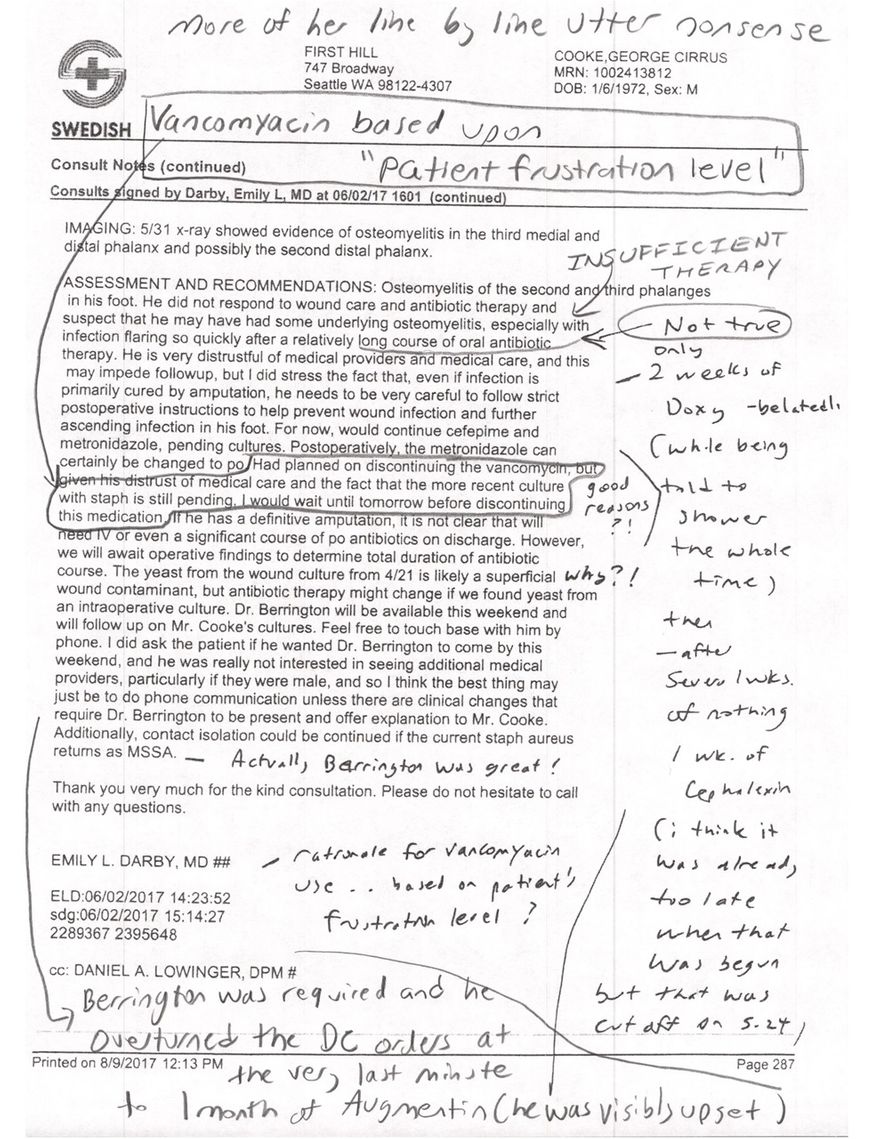 more of her line by line utter nonsense
FIRST HILL
747 Broadway
Seattle WA 98122-4307
COOKE,GEORGE CIRRUS
MRN: 1002413812
DOB: 1/6/1972, Sex: M
SWEDISH
Vancomyacin based upon
"Patient frustration level"
Consult Notes (continued)
Consults signed by Darby, Emily L, MD at 06/02/17 1601 (continued)
IMAGING: 5/31 x-ray showed evidence of osteomyelitis in the third medial and
distal phalanx and possibly the second distal phalanx.
INSUFFICIENT
THERAPY
ASSESSMENT AND RECOMMENDATIONS: Osteomyelitis of the second and third phalanges
in his foot. He did not respond to wound care and antibiotic therapy and
suspect that he may have had some underlying osteomyelitis, especially with
infection flaring so quickly after a relatively long course of oral antibiotic
therapy. He is very distrustful of medical providers and medical care, and this
may impede followup, but I did stress the fact that, even if infection is
primarily cured by amputation, he needs to be very careful to follow strict
postoperative instructions to help prevent wound infection and further
ascending infection in his foot. For now, would continue cefepime and
metronidazole, pending cultures. Postoperatively, the metronidazole can
certainly be changed to po. Had planned on discontinuing the vancomycin, but
given his distrust of medical care and the fact that the more recent culture
with staph is still pending, I would wait until tomorrow before discontinuing
this medication. If he has a definitive amputation, it is not clear that will
need IV or even a significant course of po antibiotics on discharge. However,
we will await operative findings to determine total duration of antibiotic
course. The yeast from the wound culture from 4/21 is likely a superficial
wound contaminant, but antibiotic therapy might change if we found yeast from
an intraoperative culture. Dr. Berrington will be available this weekend and
will follow up on Mr. Cooke's cultures. Feel free to touch base with him by
phone. I did ask the patient if he wanted Dr. Berrington to come by this
weekend, and he was really not interested in seeing additional medical
providers, particularly if they were male, and so I think the best thing may
just be to do phone communication unless there are clinical changes that
require Dr. Berrington to be present and offer explanation to Mr. Cooke.
Additionally, contact isolation could be continued if the current staph aureus
returns as MSSA.
— Actually Berrington was great!
good
reasons
?!
why?!
Not true
only
- 2 weeks of
Doxy - belatedly
(while being
told to
shower
the whole
time)
then
- after
several wks.
of nothing
1 wk. of
Cephalexin
(i think it
was already
too late
when that
was begun
but that was
cut off on 5.24)
Thank you very much for the kind consultation. Please do not hesitate to call
with any questions.
EMILY L. DARBY, MD ##
- rationale for vancomyacin
use .. based on patient's
frustration level ?
ELD:06/02/2017 14:23:52
sdg:06/02/2017 15:14:27
2289367 2395648
cc: DANIEL A. LOWINGER, DPM #
Berrington was required and he
overturned the DC orders at
the very last minute
to 1 month of Augmentin (he was visibly upset)
Printed on 8/9/2017 12:13 PM
Page 287